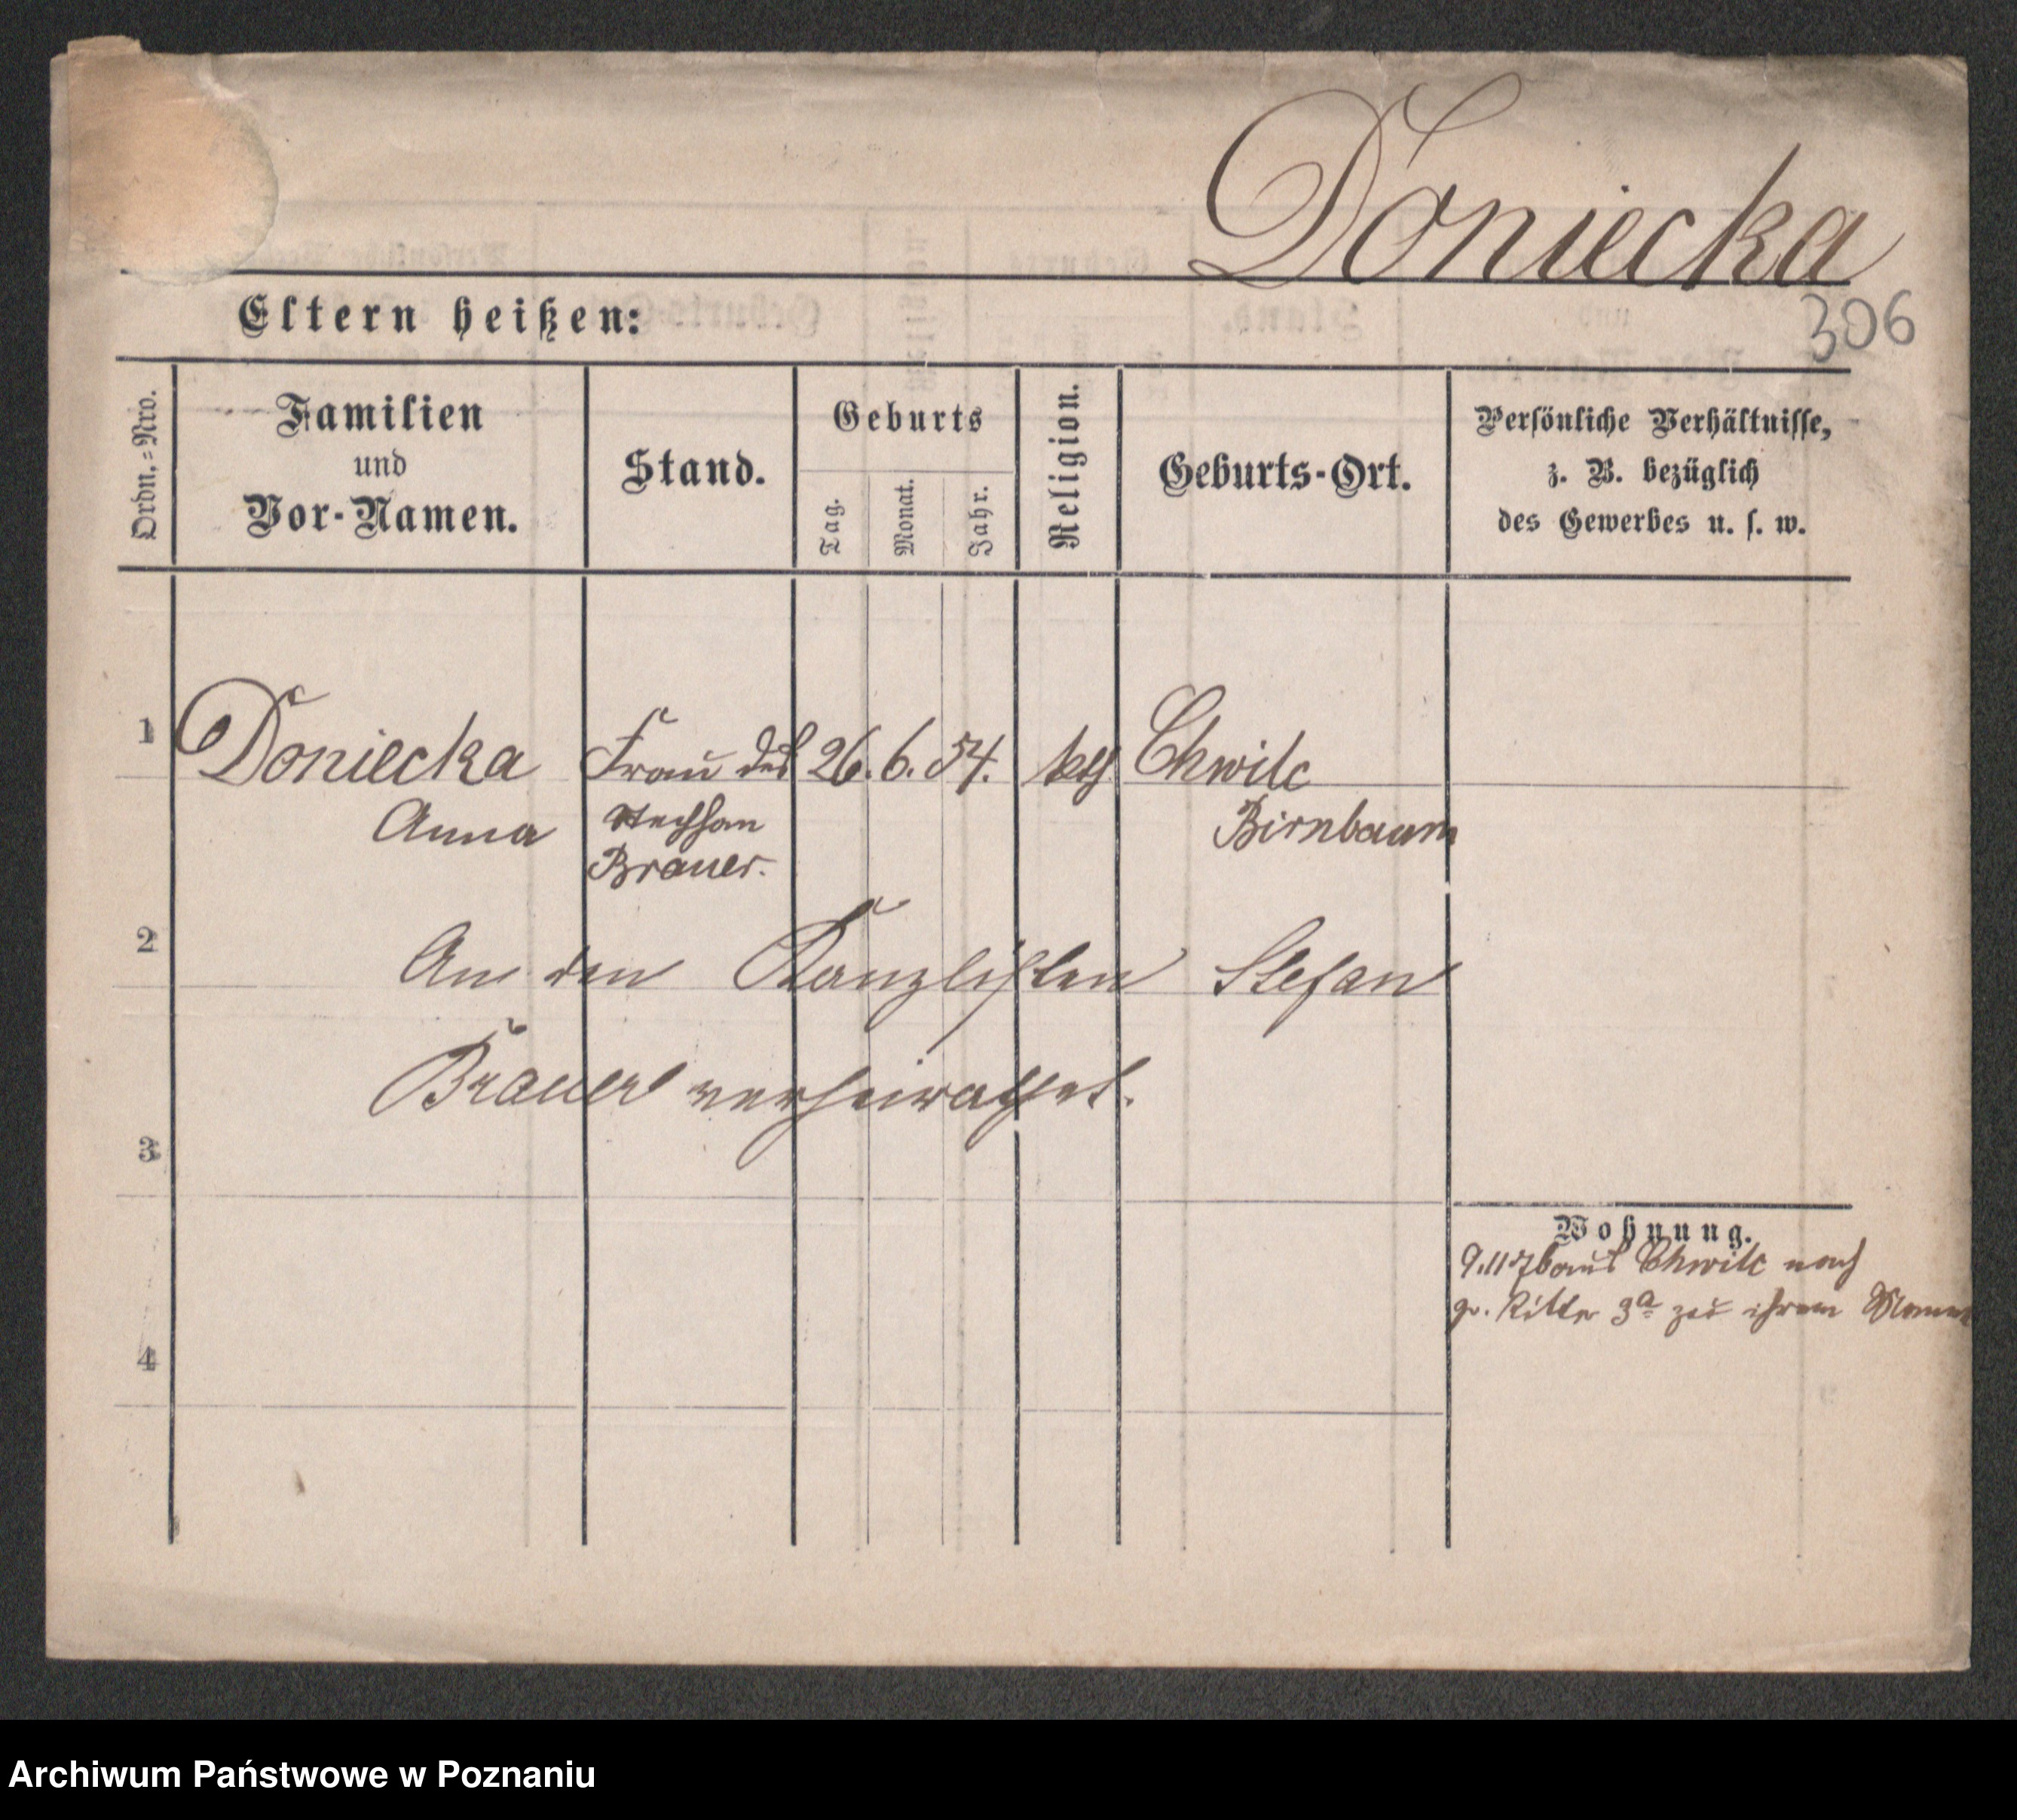 Doniecka
306
Eltern heißen:
Ordn.-Nro.
Familien
und
Vor-Namen.
Stand.
Geburts
Tag.
Monat.
Jahr.
Religion.
Geburts-Ort.
Persönliche Verhältnisse,
z. B. bezüglich
des Gewerbes u. s. w.
1 Doniecka Frau des 26. 6. 54. kth Chwilc
Anna Stephan Birnbaum
Brauer.
2 An den Kanzlisten Stefan
Brauer verheirathet.
3
Wohnung.
9.11 76 aus Chwilc nach
gr. Ritter 3a zu ihrem Manne
4
Archiwum Państwowe w Poznaniu